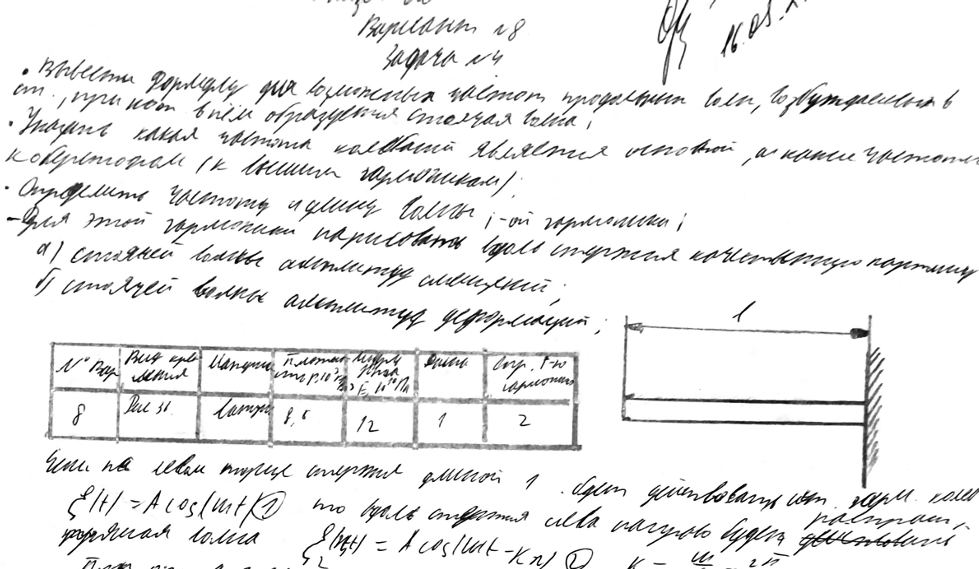 Вариант №8
Задача №4
• Вывести формулу для возможных частот продольных волн, возбуждаемых в
ст., при кот. в нём образуется стоячая волна;
• Указать какая частота колебаний является основной, а какие частоты
к обертонам (к высшим гармоникам);
• Определить частоту и длину волны i-ой гармоники;
- Для этой гармоники нарисовать вдоль стержня качественную картину
а) стоячей волны амплитуд смещений;
б) стоячей волны амплитуд деформаций;
l
№ Вар Вид креп-ления Материал Плотность ρ, 10³ Модуль Юнга E, 10¹⁰ Па Длина Опр. i-ю гармонику
8 Рис 31 латунь 8,5 12 1 2
Если на левом торце стержня длиной l будет действовать гарм. колеб
ξ(t) = A cos(ωt) ① то вдоль стержня слева направо будет распростр.
упругая волна ξ = A cos(ωt - Kx) ② K =